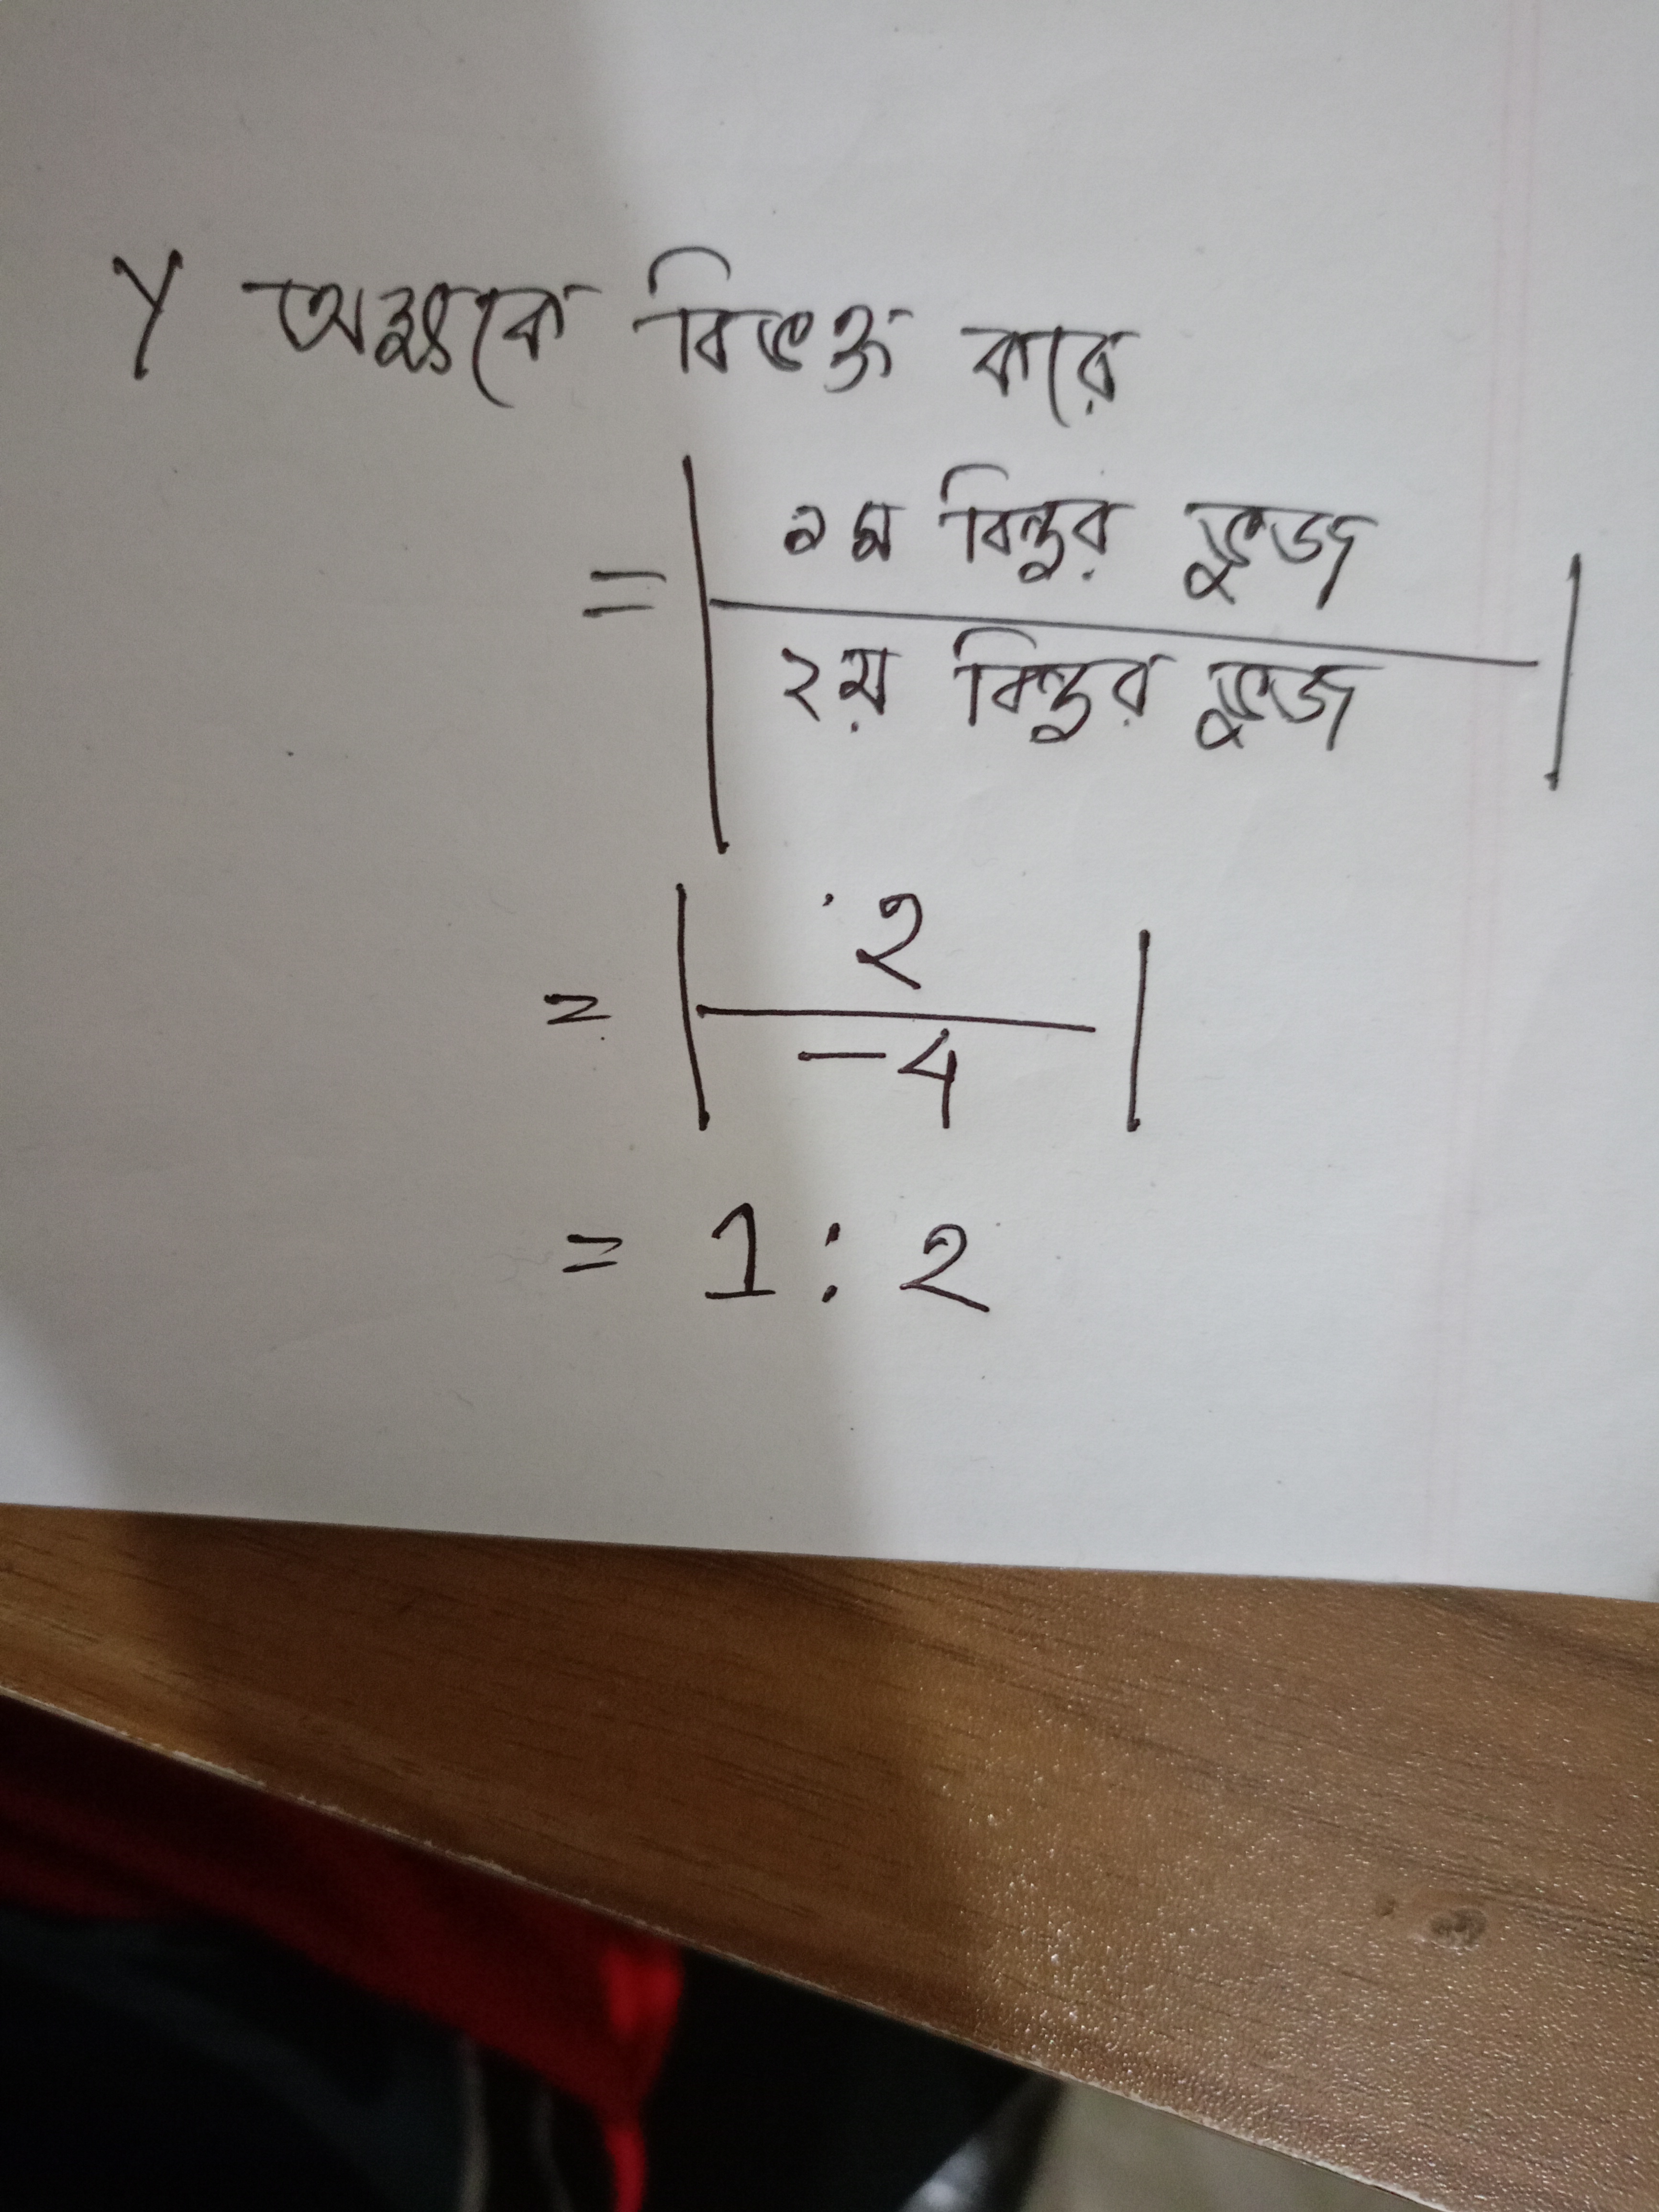 Y অক্ষকে বিভক্ত করে
= | ১ম বিন্দুর ভুজ / ২য় বিন্দুর ভুজ |
= | 2 / -4 |
= 1 : 2